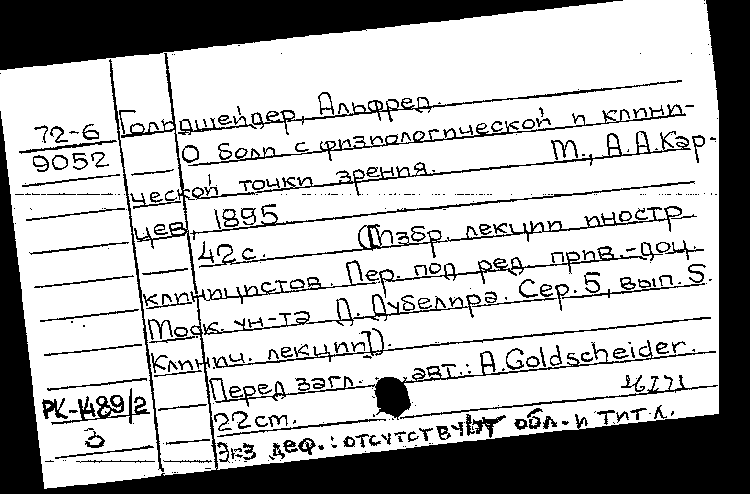 72-6
9052
Гольдшейдер, Альфред.
О боли с физиологической и клини-
ческой точки зрения. М., А.А.Кар-
цев, 1895
42 с. ([Избр. лекции иностр.
клиницистов. Пер. под ред. прив.-доц.
Моск. ун-та Д. Дубелира. Сер. 5, вып. 5.
Клинич. лекции]).
Перед загл. авт.: A.Goldscheider.
22 cm. 46771
Экз деф.: отсутствуют обл. и тит л.
РК-1489/2
3